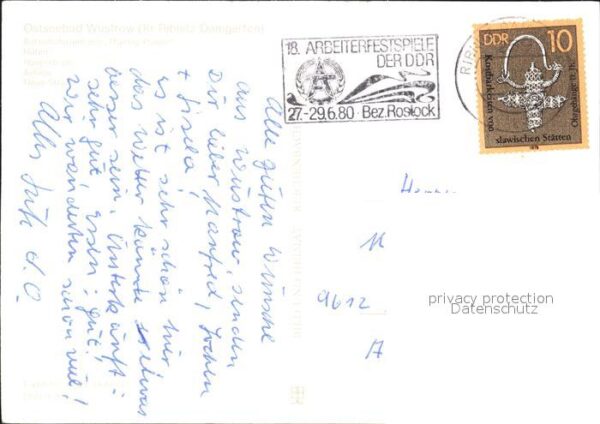 Ostseebad Wustrow (Kr Ribnitz Damgarten)
Hafen
18. ARBEITERFESTSPIELE
DER DDR
27.-29.6.80 · Bez. Rostock
DDR 10
Kostbarkeiten von
slawischen Stätten
Ohrgehänge
Alle guten Wünsche
aus Wustrow, senden
Dir lieber Manfred, Jochen
+ Gisela,
es ist sehr schön hier
das Wetter könnte etwas
besser sein, Unterkunft:
sehr gut, Essen: gut!
Wir wanderten schon viel!
Alles Gute
9612
privacy protection
Datenschutz